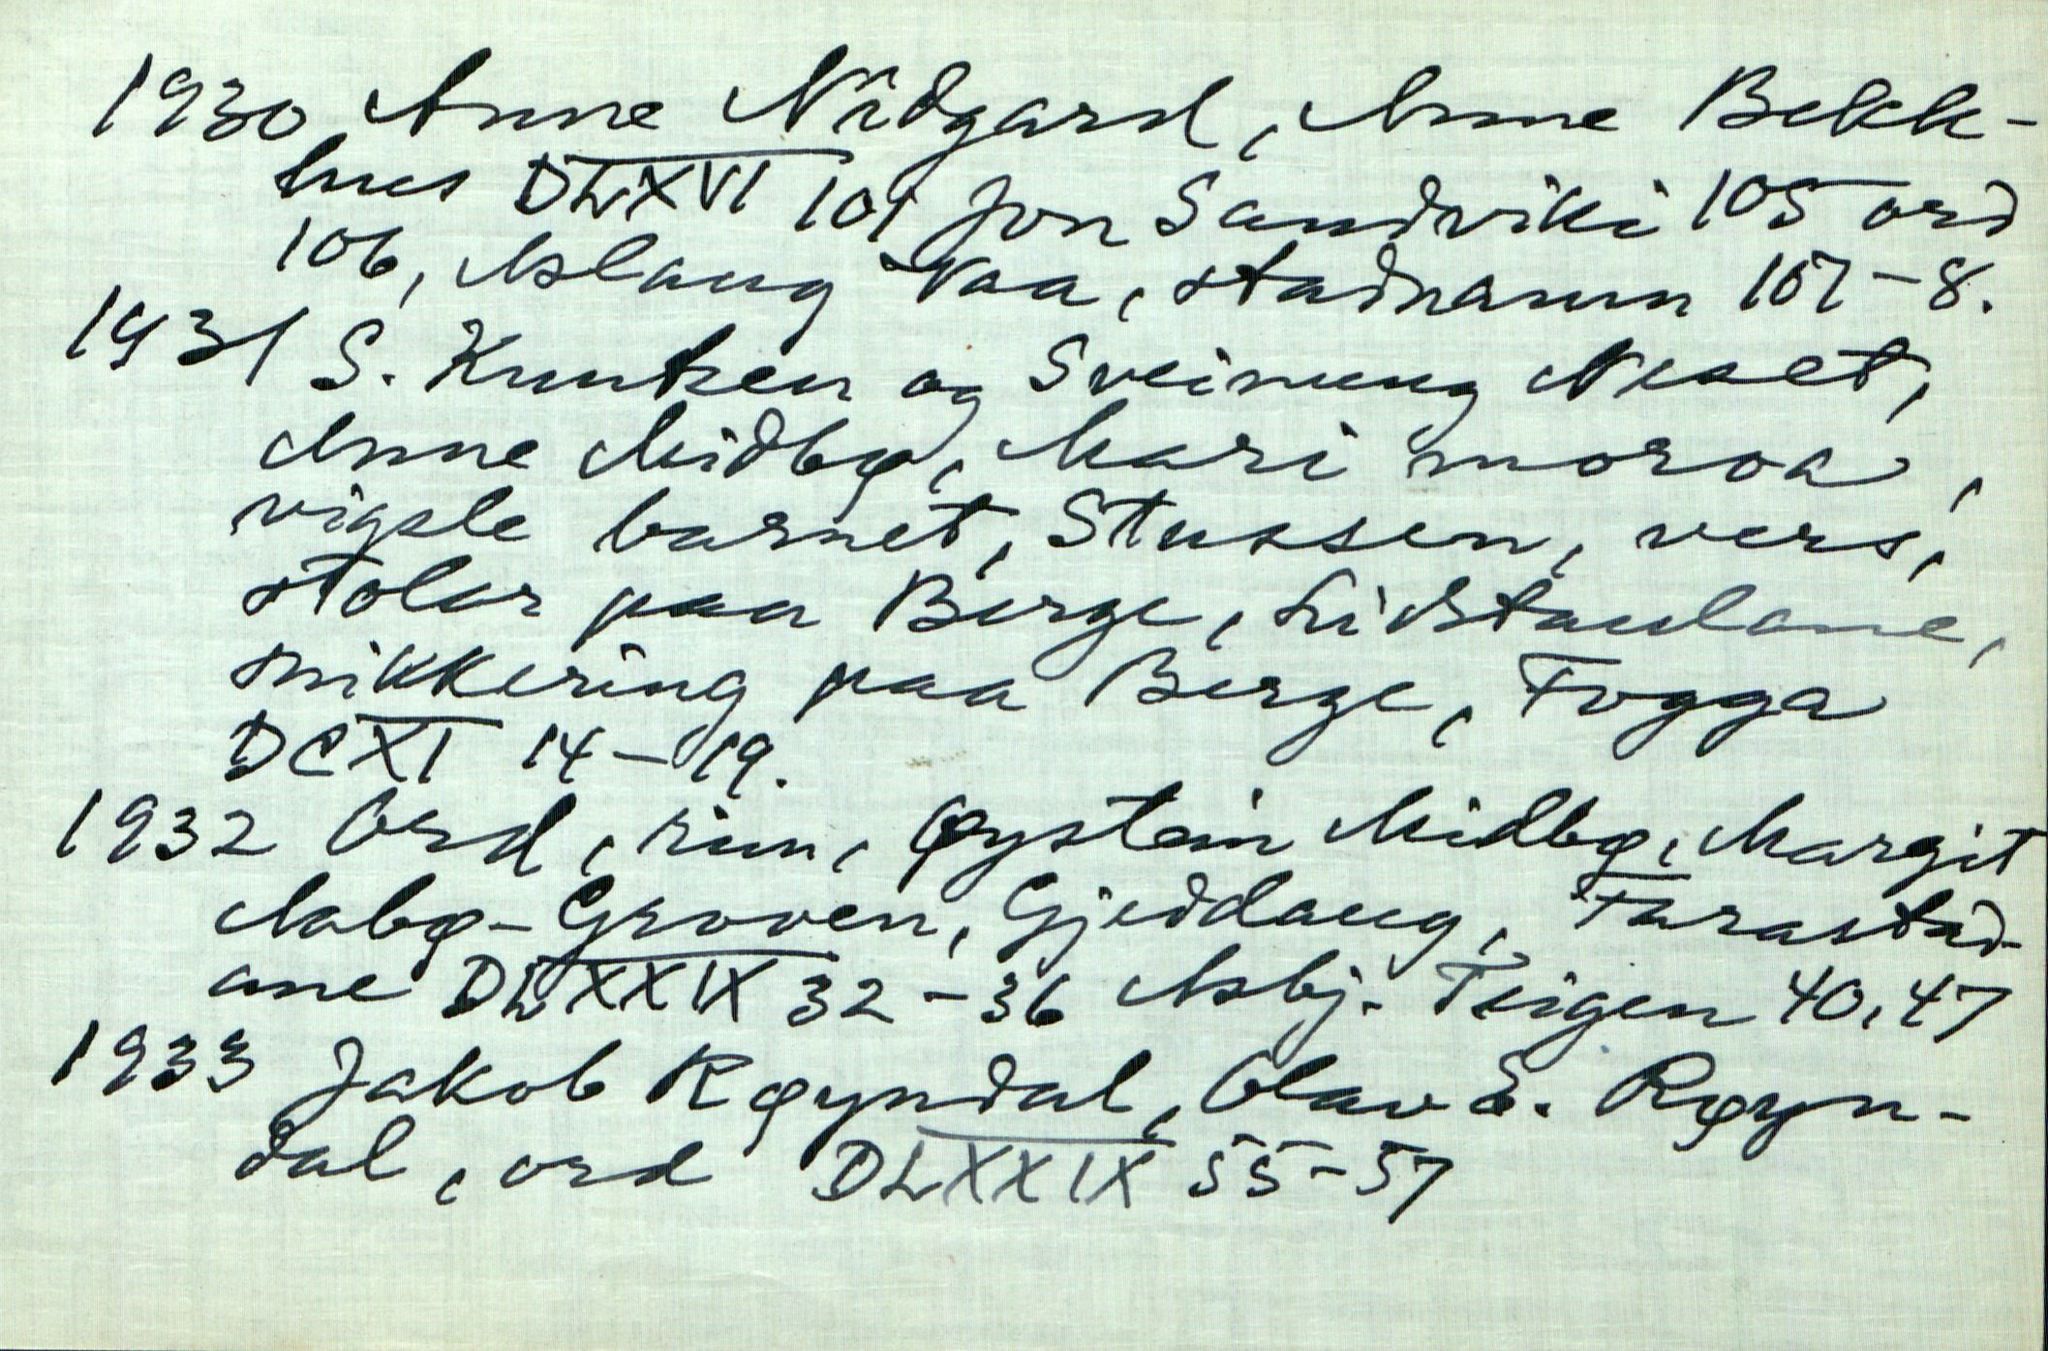 1930 Anne Nîðgard, Anne Bekk-
hus DLXVI 101 Jon Sandviki 105 ord
106, Aslaug Vaa, staðnamn 107-8.
1931 S. Knutsen og Sveinung Neset,
Anne Miðbø, Mari moroa,
vigsle barnet, Stussen, vers,
stolar paa Berge, Liðstaulane,
snikkering paa Berge, Togga
DCXI 14-19.
1932 Ord, rim, Øystein Midbø, Margit
Aabø-Groven, Gjeddaug, Tarastad-
ane DLXXXIX 32-36 Asbj. Teigen 40,47
1933 Jakob Røyndal, Olav S. Røyn-
dal, ord DLXXXIX 55-57